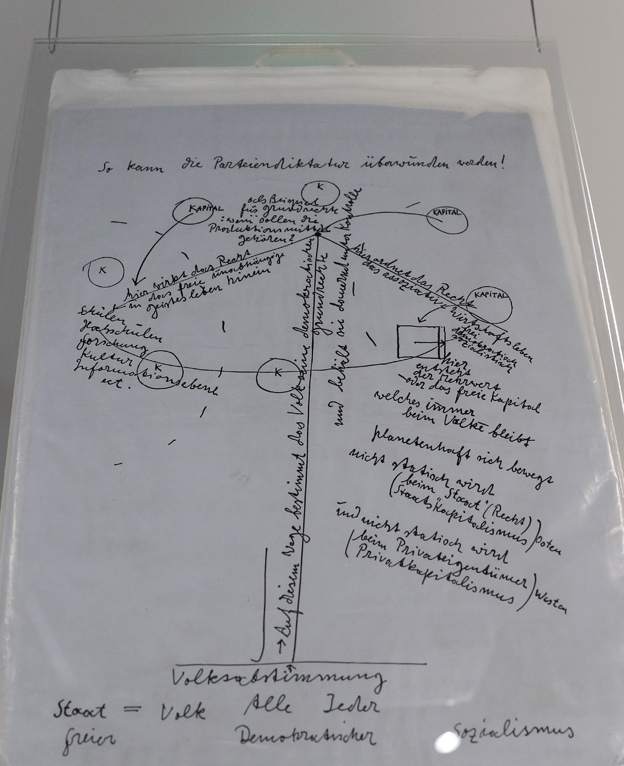 So kann die Parteiendiktatur überwunden werden!
K
KAPITAL
als Beispiel
für grundrechte
: wem sollen die
Produktionsmittel
gehören?
KAPITAL
K
hier wirkt das Recht
in das freie unabhängige
geistesleben hinein
hier ordnet das Recht
das assoziative Wirtschaftsleben
KAPITAL
frei
demokratisch
sozialistisch
Schulen
Hochschulen
Forschung
Kultur
Informationsebene
ect.
K
K
hier
entsteht
der Mehrwert
oder das freie Kapital
welches immer
beim Volke bleibt
planetenhaft sich bewegt
nicht statisch wird
(beim "Staat" (Recht)
(Staatskapitalismus) Osten
und nicht statisch wird
(beim Privateigentümer)
(Privatkapitalismus) Westen
→ Auf diesem Wege bestimmt das Volk seine demokratischen
grundrechte
und behält sie dauernd unter Kontrolle
Volksabstimmung
Staat = Volk Alle Jeder
freier Demokratischer Sozialismus